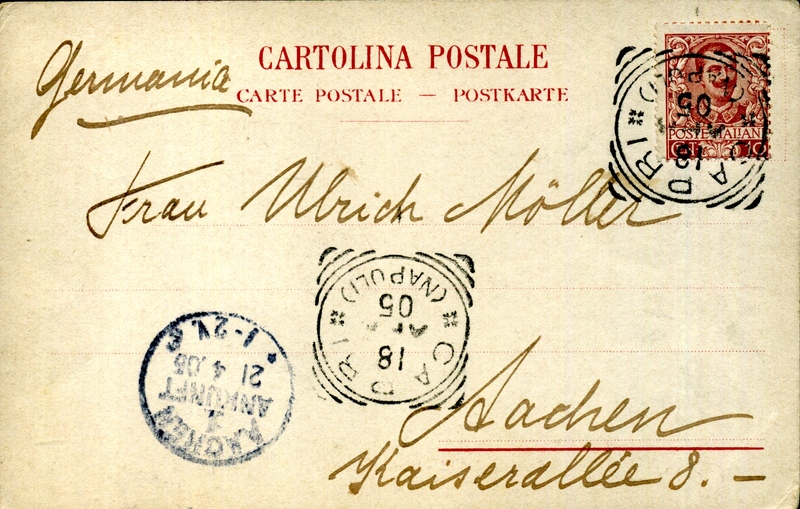 CARTOLINA POSTALE
CARTE POSTALE — POSTKARTE
Germania
POSTE ITALIANE
CAPRI
(NAPOLI)
18
05
Frau Ulrich Möller
CAPRI
(NAPOLI)
18
AP
05
AACHEN
1
ANKUNFT
21 4 05
1-2V.
Aachen
Kaiserallée 8. –